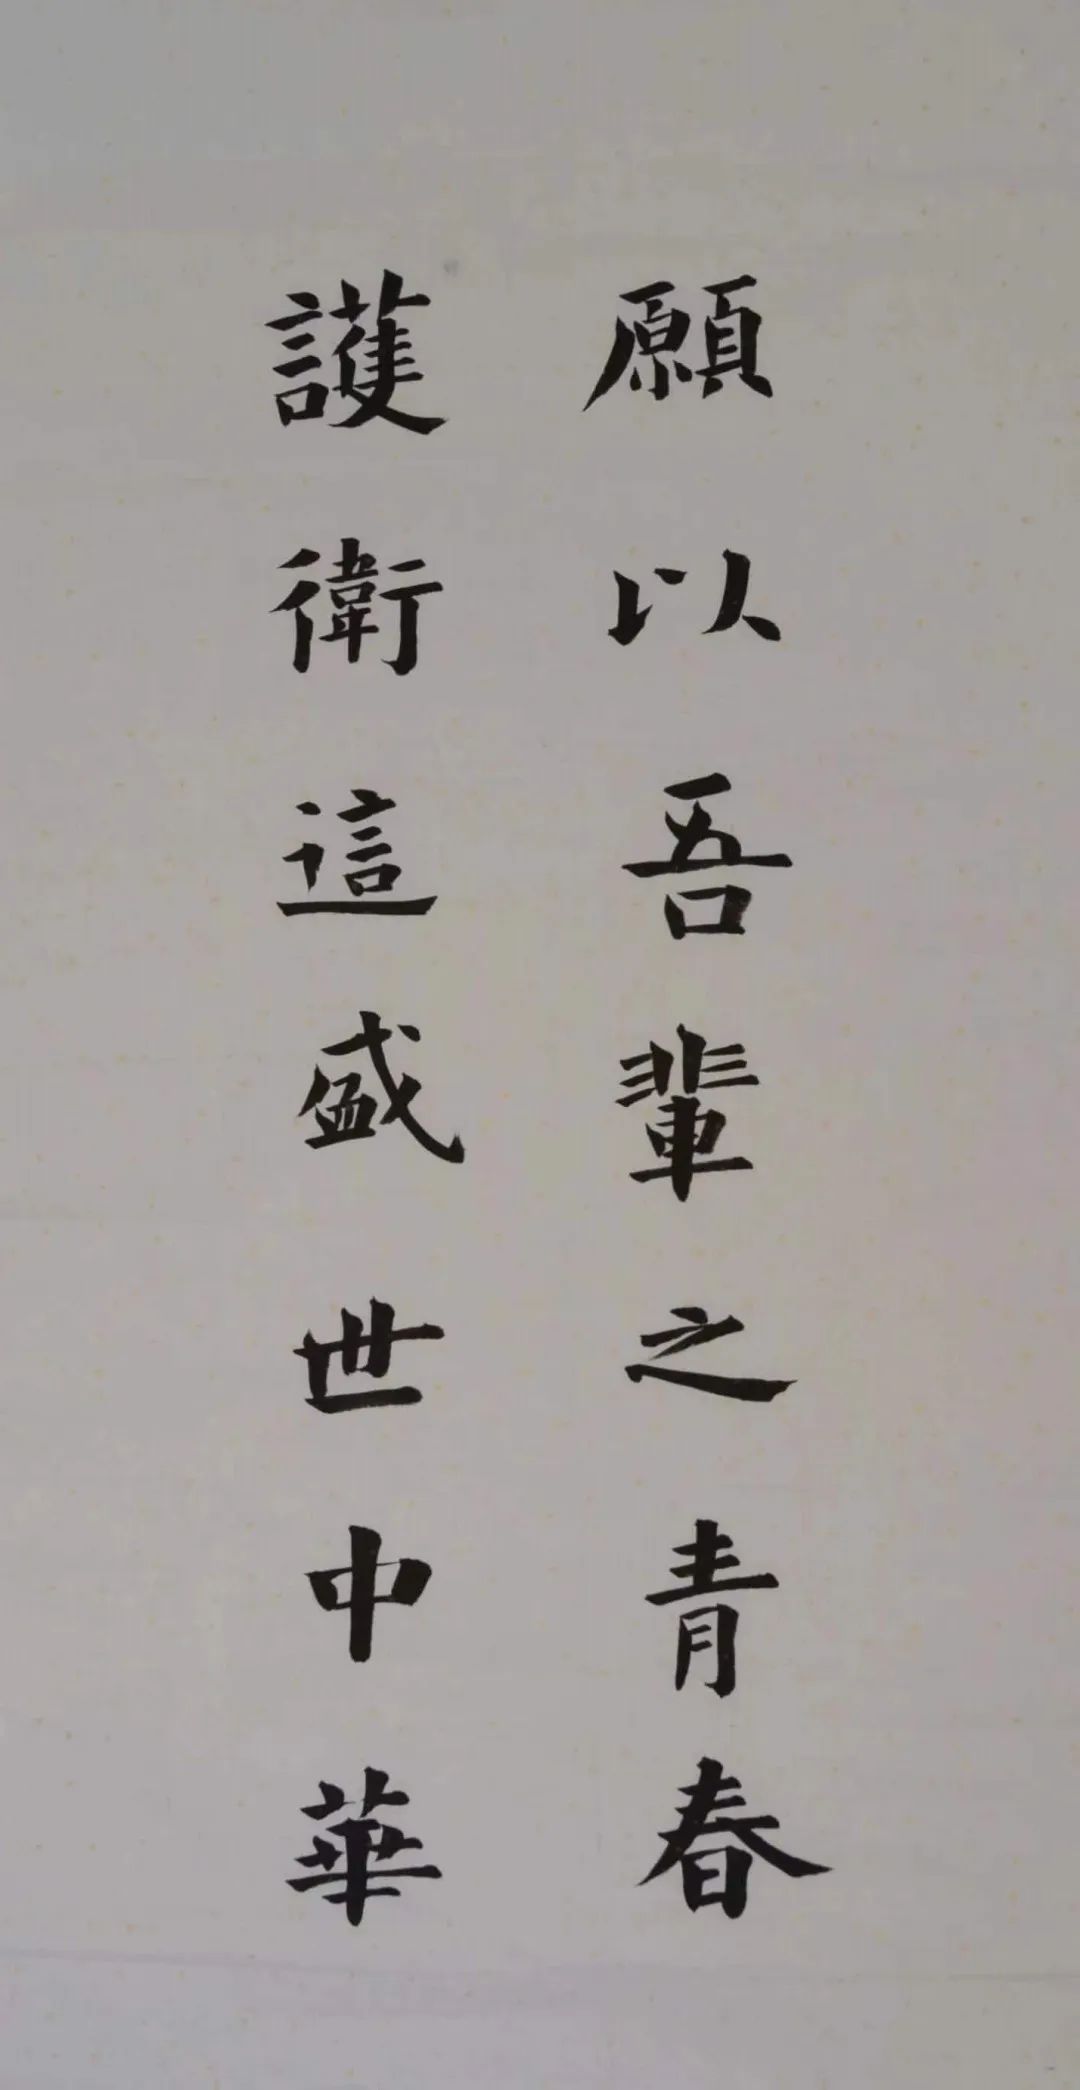 願以吾輩之青春
護衛這盛世中華